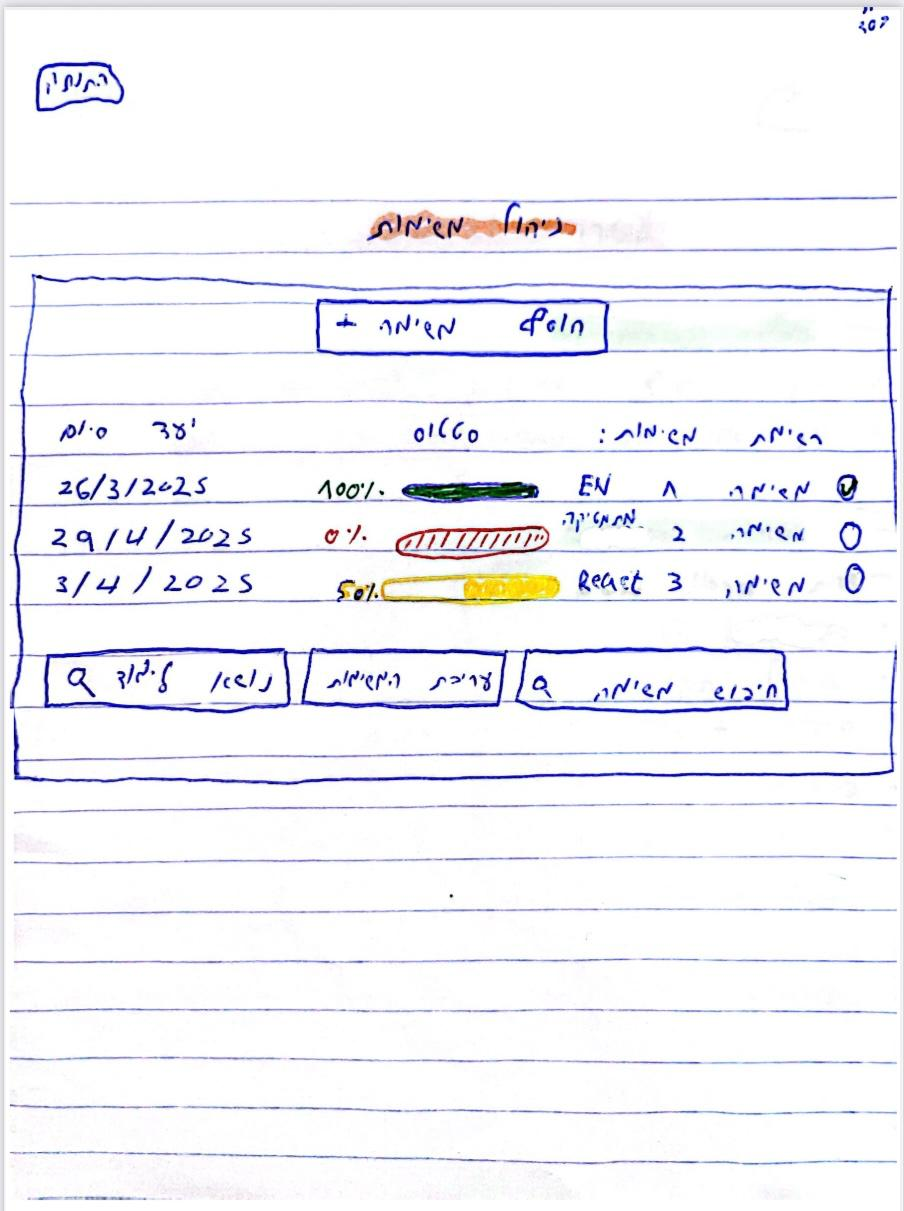 בס"ד
התנתק
ניהול משימות
הוסף משימה +
רשימת משימות: סטטוס יעד סיום
משימה 1 EN 100% 26/3/2025
משימה 2 מתמטיקה 0% 29/4/2025
משימה 3 React 50% 3/4/2025
חיפוש משימה עריכת המשימות נושא לימוד